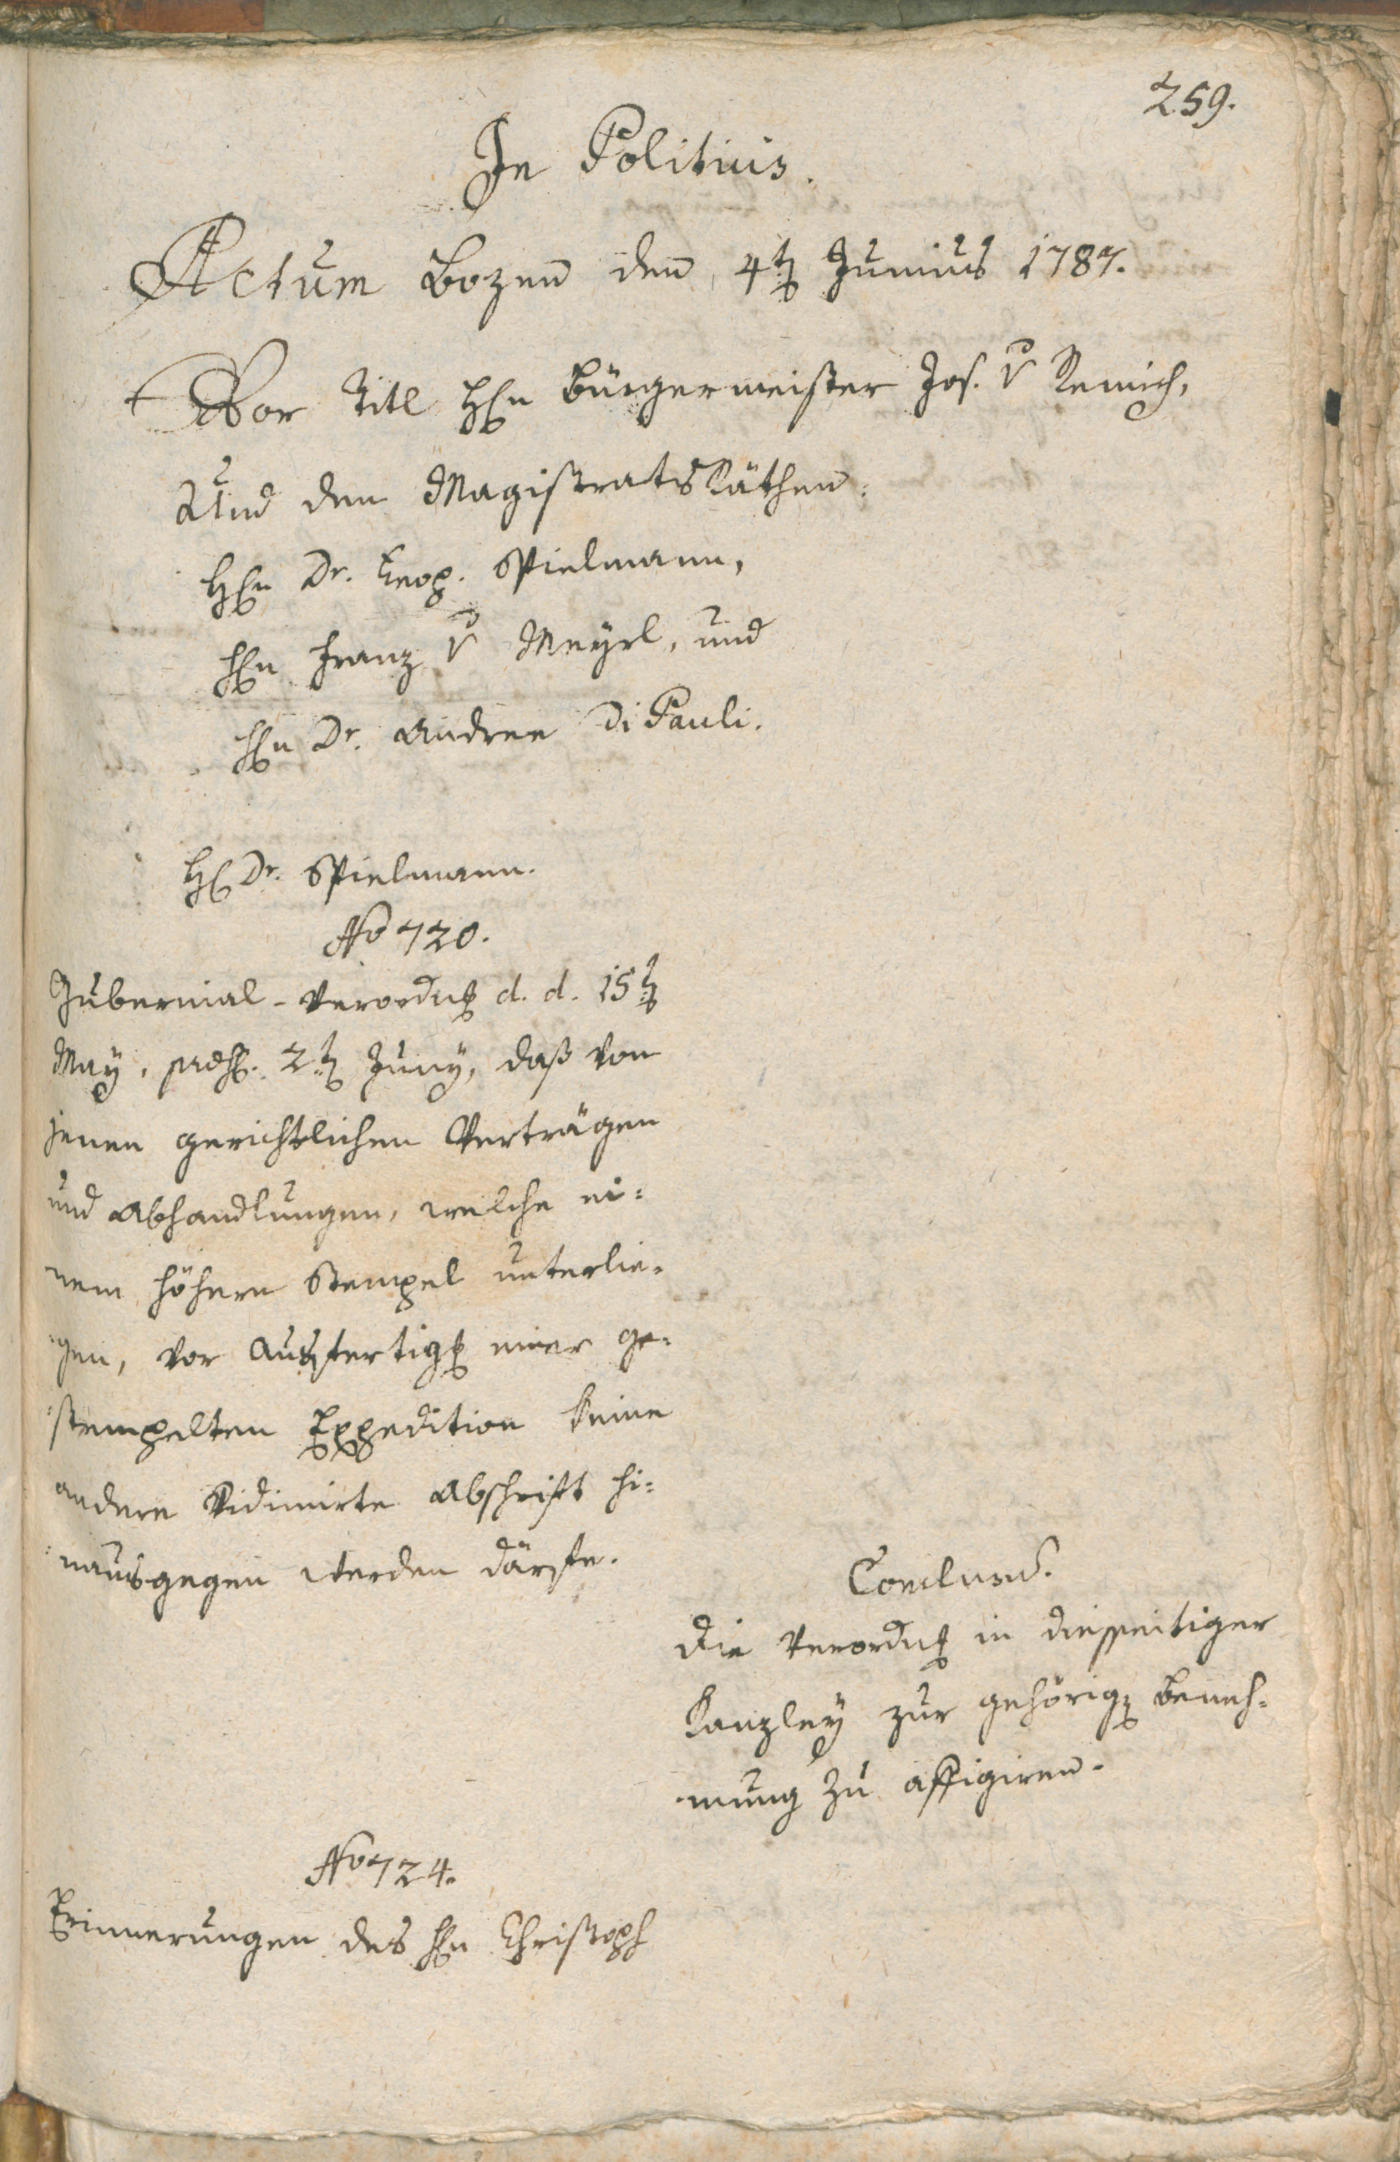 259.
In Politicis.
Actum Bozen den 4t Junius 1787.
Vor Titl Hhn Bürgermeister Jos. v Remich,
Und den Magistratsräthen:
Hhn Dr. Leop. Spielmann,
Hhn Franz v Meyrl, und
Hhn Dr. Andree Di Pauli.
Hh Dr. Spielmann.
No 720.
Gubernial-Verordng d. d. 15t
May, 2t Juny, daß von
jenen gerichtlichen Verträgen
und Abhandlungen, welche ei=
nem höhern Stempel unterlie=
gen, vor Ausfertigg einer ge=
stempelten Expedition keine
andere Vidimirte Abschrift hi=
nausgegen werden därfte.
Conclus.
Die Verordng in diesseitiger
Kanzley zur gehörig Beneh=
mung zu affigiren.
No 724.
Erinnerungen des Hhn Christoph